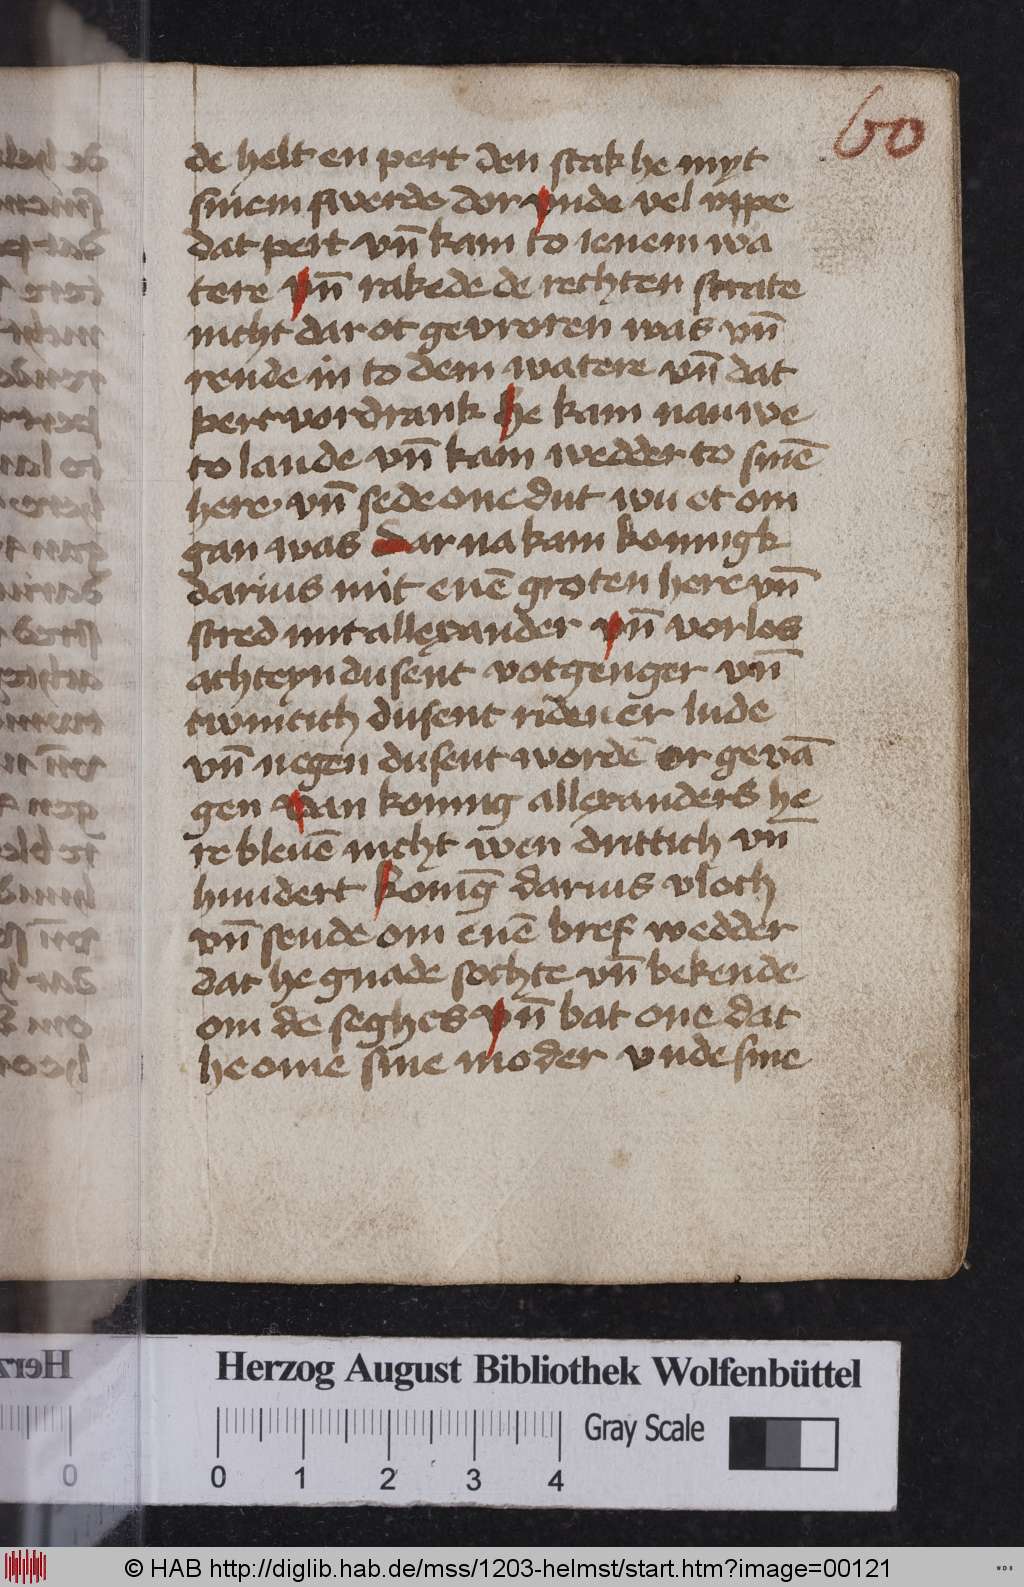 60
de helt en pert den stak he myt
sinem swerde dor vnde vel vppe
dat pert vn̄ kam to ienem wa
tere vn̄ rakede de rechten strate
nicht dar ot gevroren was vn̄
rende in to dem watere vn̄ dat
pert vordrank he kam nauwe
to lande vn̄ kam wedder to sinē
here vn̄ sede one dut wu et om
gan was dar na kam konnigk
darius mit enē groten here vn̄
stred mit allexander vn̄ vorlos
achteyn dusent votgenger vn̄
twintich dusent ridener lude
vn̄ negen dusent wordē or gevā
gen van koning allexanders he
re bleuē nicht wen drittich vn̄
hundert koniḡ darius vloch
vn̄ sende om enē bref wedder
dat he gnade sochte vn̄ bekende
om de seghes vn̄ bat one dat
he ome sine moder vnde sine
Herzog August Bibliothek Wolfenbüttel
Gray Scale
0 1 2 3 4
© HAB http://diglib.hab.de/mss/1203-helmst/start.htm?image=00121